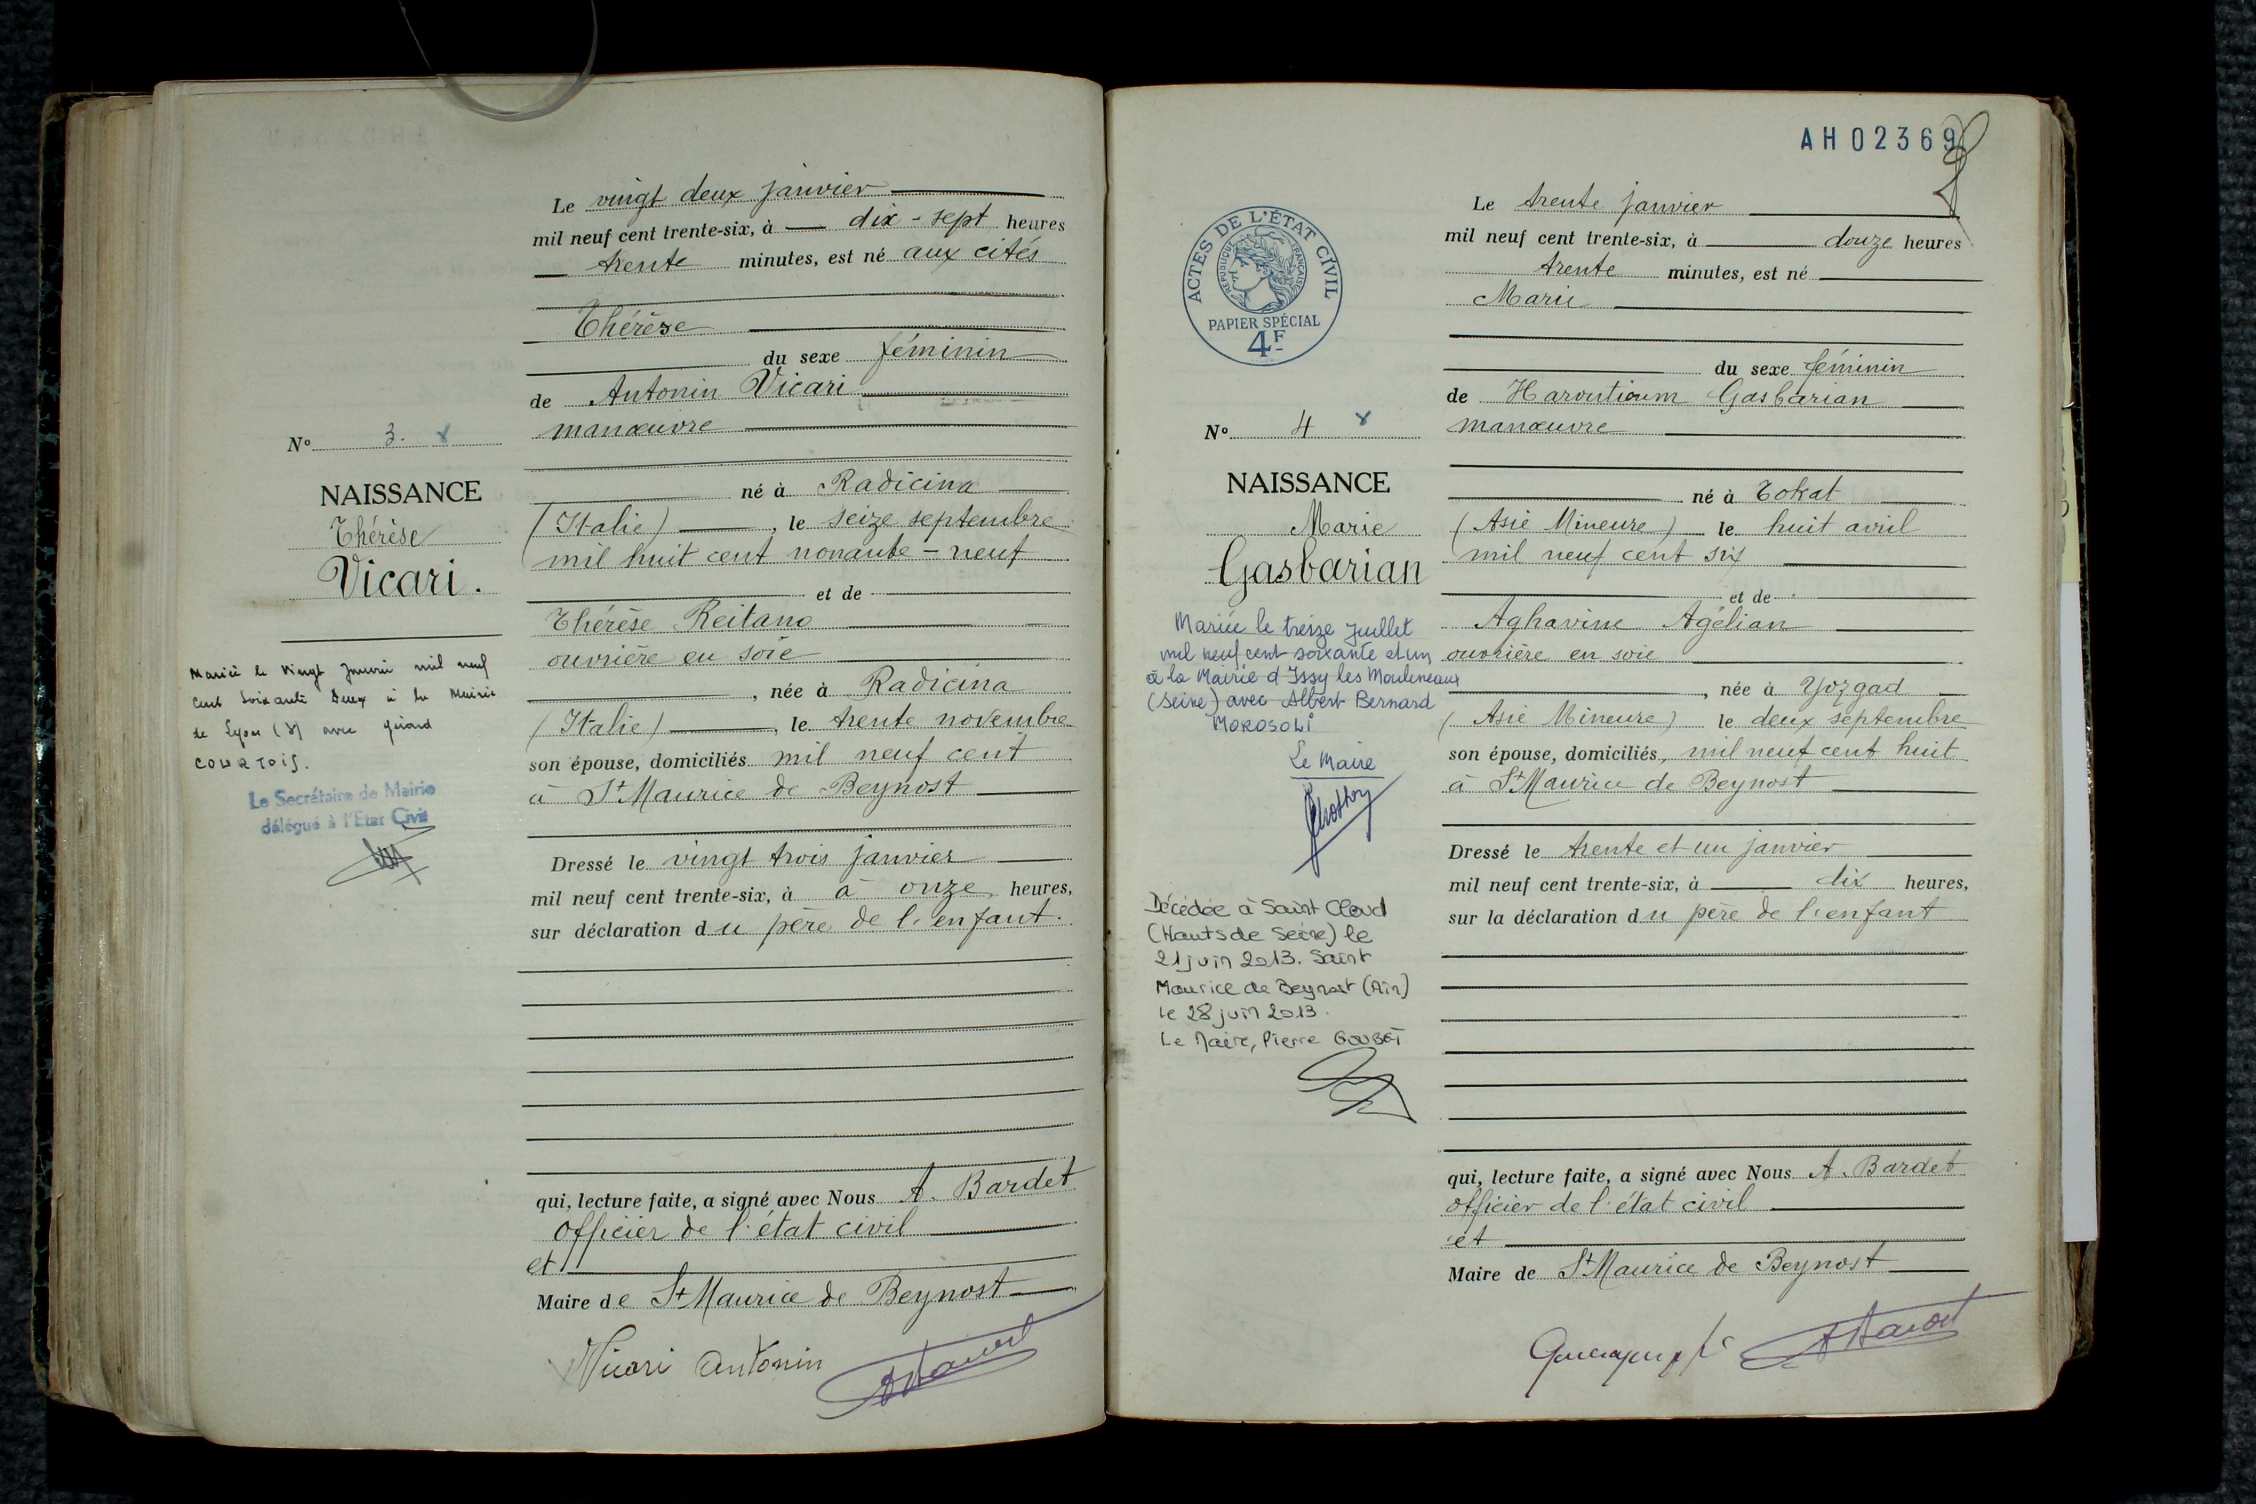 Le vingt deux janvier
mil neuf cent trente-six, à dix-sept heures
trente minutes, est né aux cités
Thérèse
du sexe féminin
de Antonin Vicari
manœuvre
né à Radicina
(Italie), le seize septembre
mil huit cent nonante-neuf
et de
Thérèse Reitano
ouvrière en soie
, née à Radicina
(Italie), le trente novembre
son épouse, domiciliés mil neuf cent
à St Maurice de Beynost
Dressé le vingt trois janvier
mil neuf cent trente-six, à à onze heures,
sur déclaration du père de l'enfant.
qui, lecture faite, a signé avec Nous A. Bardet
officier de l'état civil
et
Maire de St Maurice de Beynost
Vicari Antonin
No 3.
NAISSANCE
Thérèse
Vicari.
Mariée le vingt Janvier mil neuf
cent soixante Deux à la Mairie
de Lyon avec Gérard
COURTOIS.
Le Secrétaire de Mairie
délégué à l'Etat Civil
AH02369
ACTES DE L'ÉTAT CIVIL
RÉPUBLIQUE FRANÇAISE
PAPIER SPÉCIAL
4F
No 4
NAISSANCE
Marie
Gasbarian
Mariée le treize Juillet
mil neuf cent soixante et un
à la Mairie d'Issy les Moulineaux
(Seine) avec Albert Bernard
MOROSOLI
Le Maire
Décédée à Saint Cloud
(Hauts de Seine) le
21 juin 2013. Saint
Maurice de Beynost (Ain)
le 28 juin 2013.
Le Maire, Pierre GOUBET
Le trente janvier
mil neuf cent trente-six, à douze heures
trente minutes, est né
Marie
du sexe féminin
de Haroutioum Gasbarian
manœuvre
né à Tokat
(Asie Mineure) le huit avril
mil neuf cent six
et de
Aghavine Agélian
ouvrière en soie
, née à Yozgad
(Asie Mineure) le deux septembre
son épouse, domiciliés, mil neuf cent huit
à St Maurice de Beynost
Dressé le trente et un janvier
mil neuf cent trente-six, à dix heures,
sur la déclaration du père de l'enfant
qui, lecture faite, a signé avec Nous A. Bardet
officier de l'état civil
et
Maire de St Maurice de Beynost